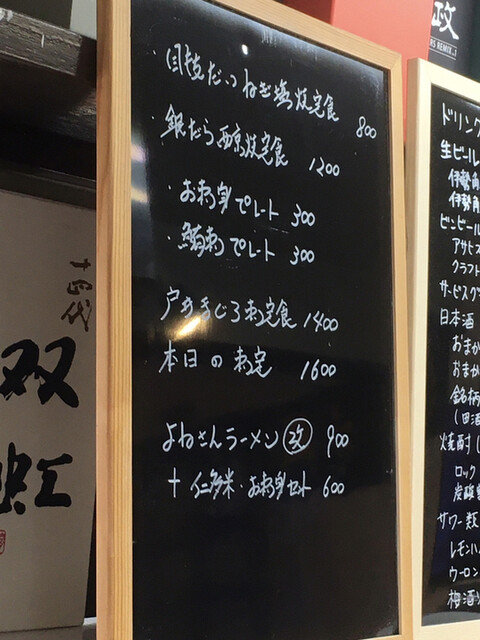 ・目抜だいつねぎ塩焼定食 800
・銀だら西京焼定食 1200
・お刺身プレート 300
・鮪刺プレート 300
戸井まぐろ刺定食 1400
本日の刺定 1600
よねさんラーメン 改 900
＋仁多米・お刺身セット 600
十四代
双虹
政
ドリンク
生ビール
伊勢角
伊勢角
ビンビール
アサヒス
クラフト
サービスグ
日本酒
おまか
おまか
銘柄
(田酒
焼酎(
ロック
炭酸
サワー類
レモンハ
ウーロン
梅酒